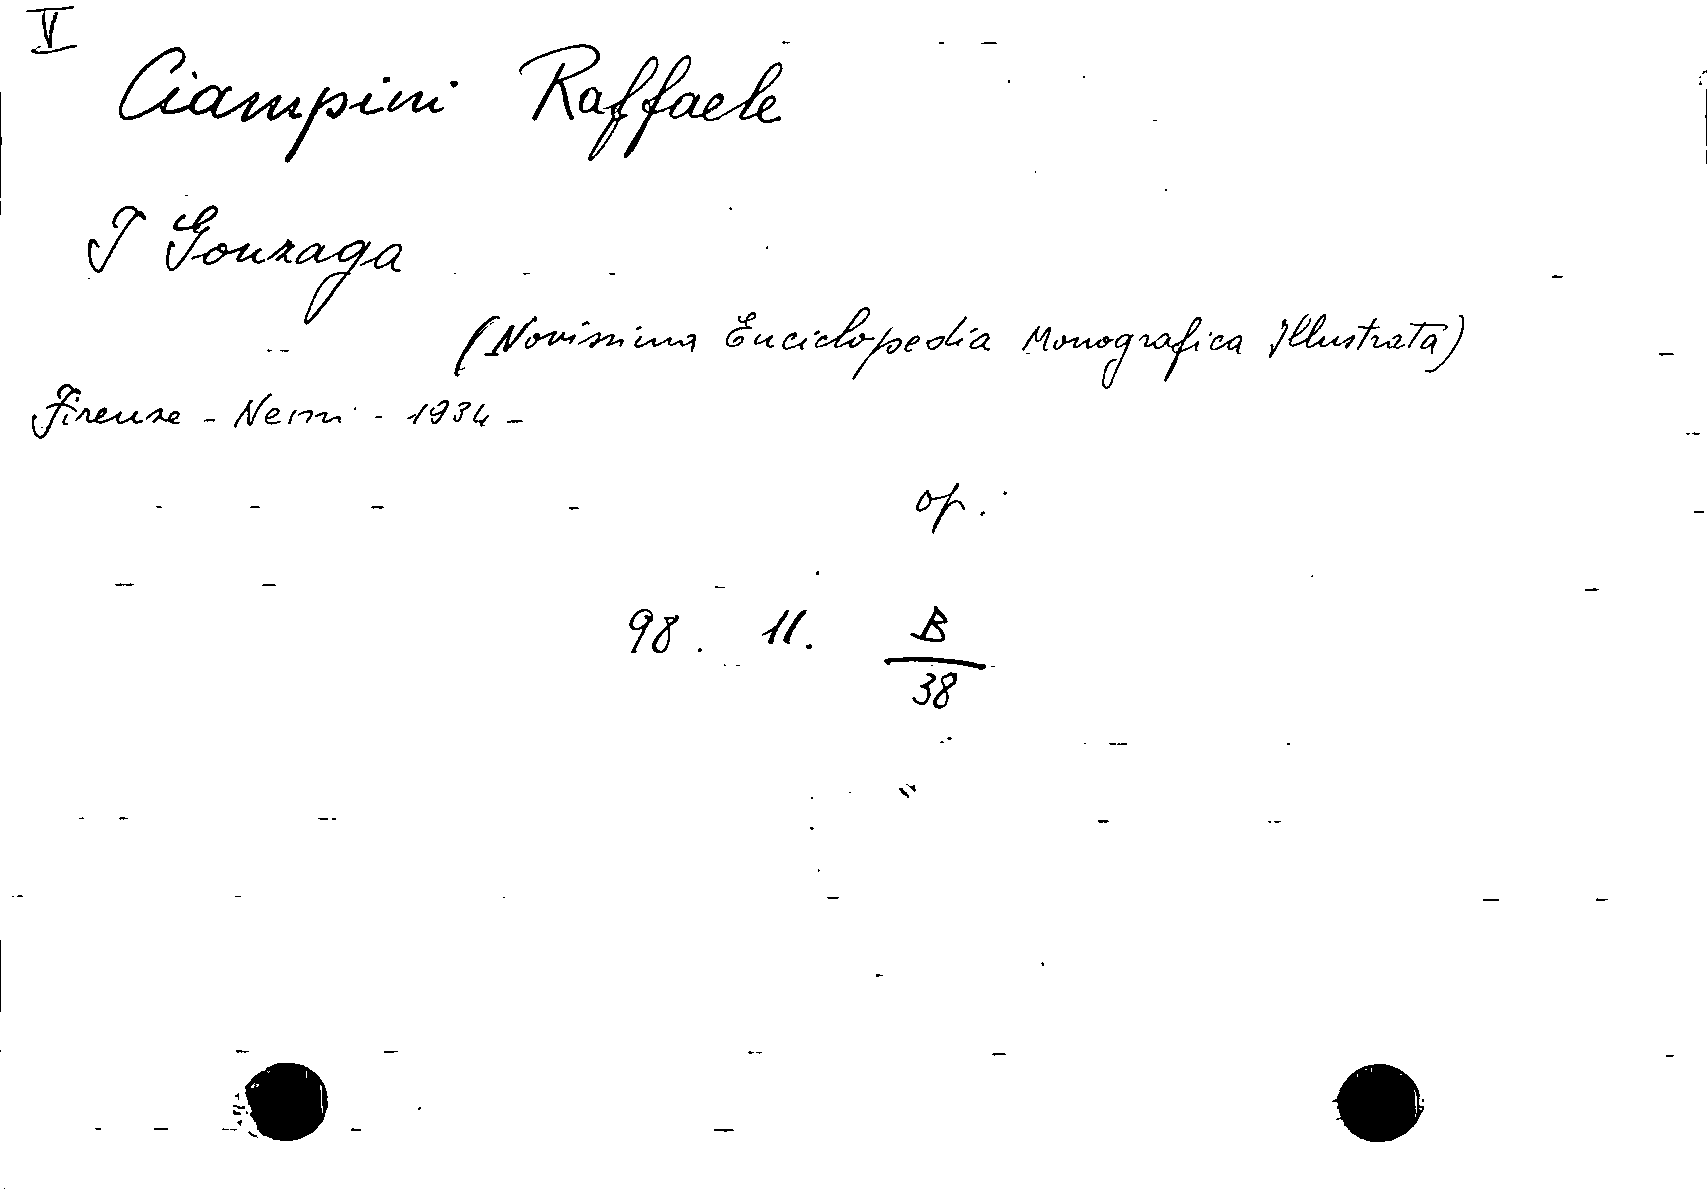 V
Ciampini Raffaele
I Gonzaga
(Novissima Enciclopedia Monografica Illustrata)
Firenze - Nemi - 1934 -
op.
98. 11. B
38